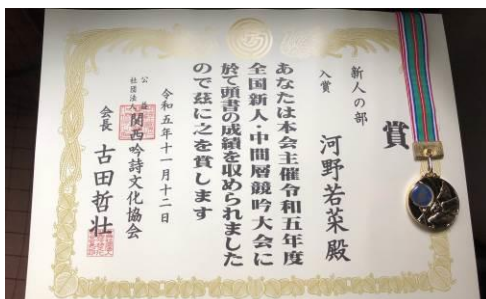 賞
新人の部
入賞
河野若菜殿
あなたは本会主催令和五年度
全国新人・中間層競吟大会に
於て頭書の成績を収められました
ので茲に之を賞します
令和五年十一月十二日
公益
社団法人
関西吟詩文化協会
会長 古田哲壮